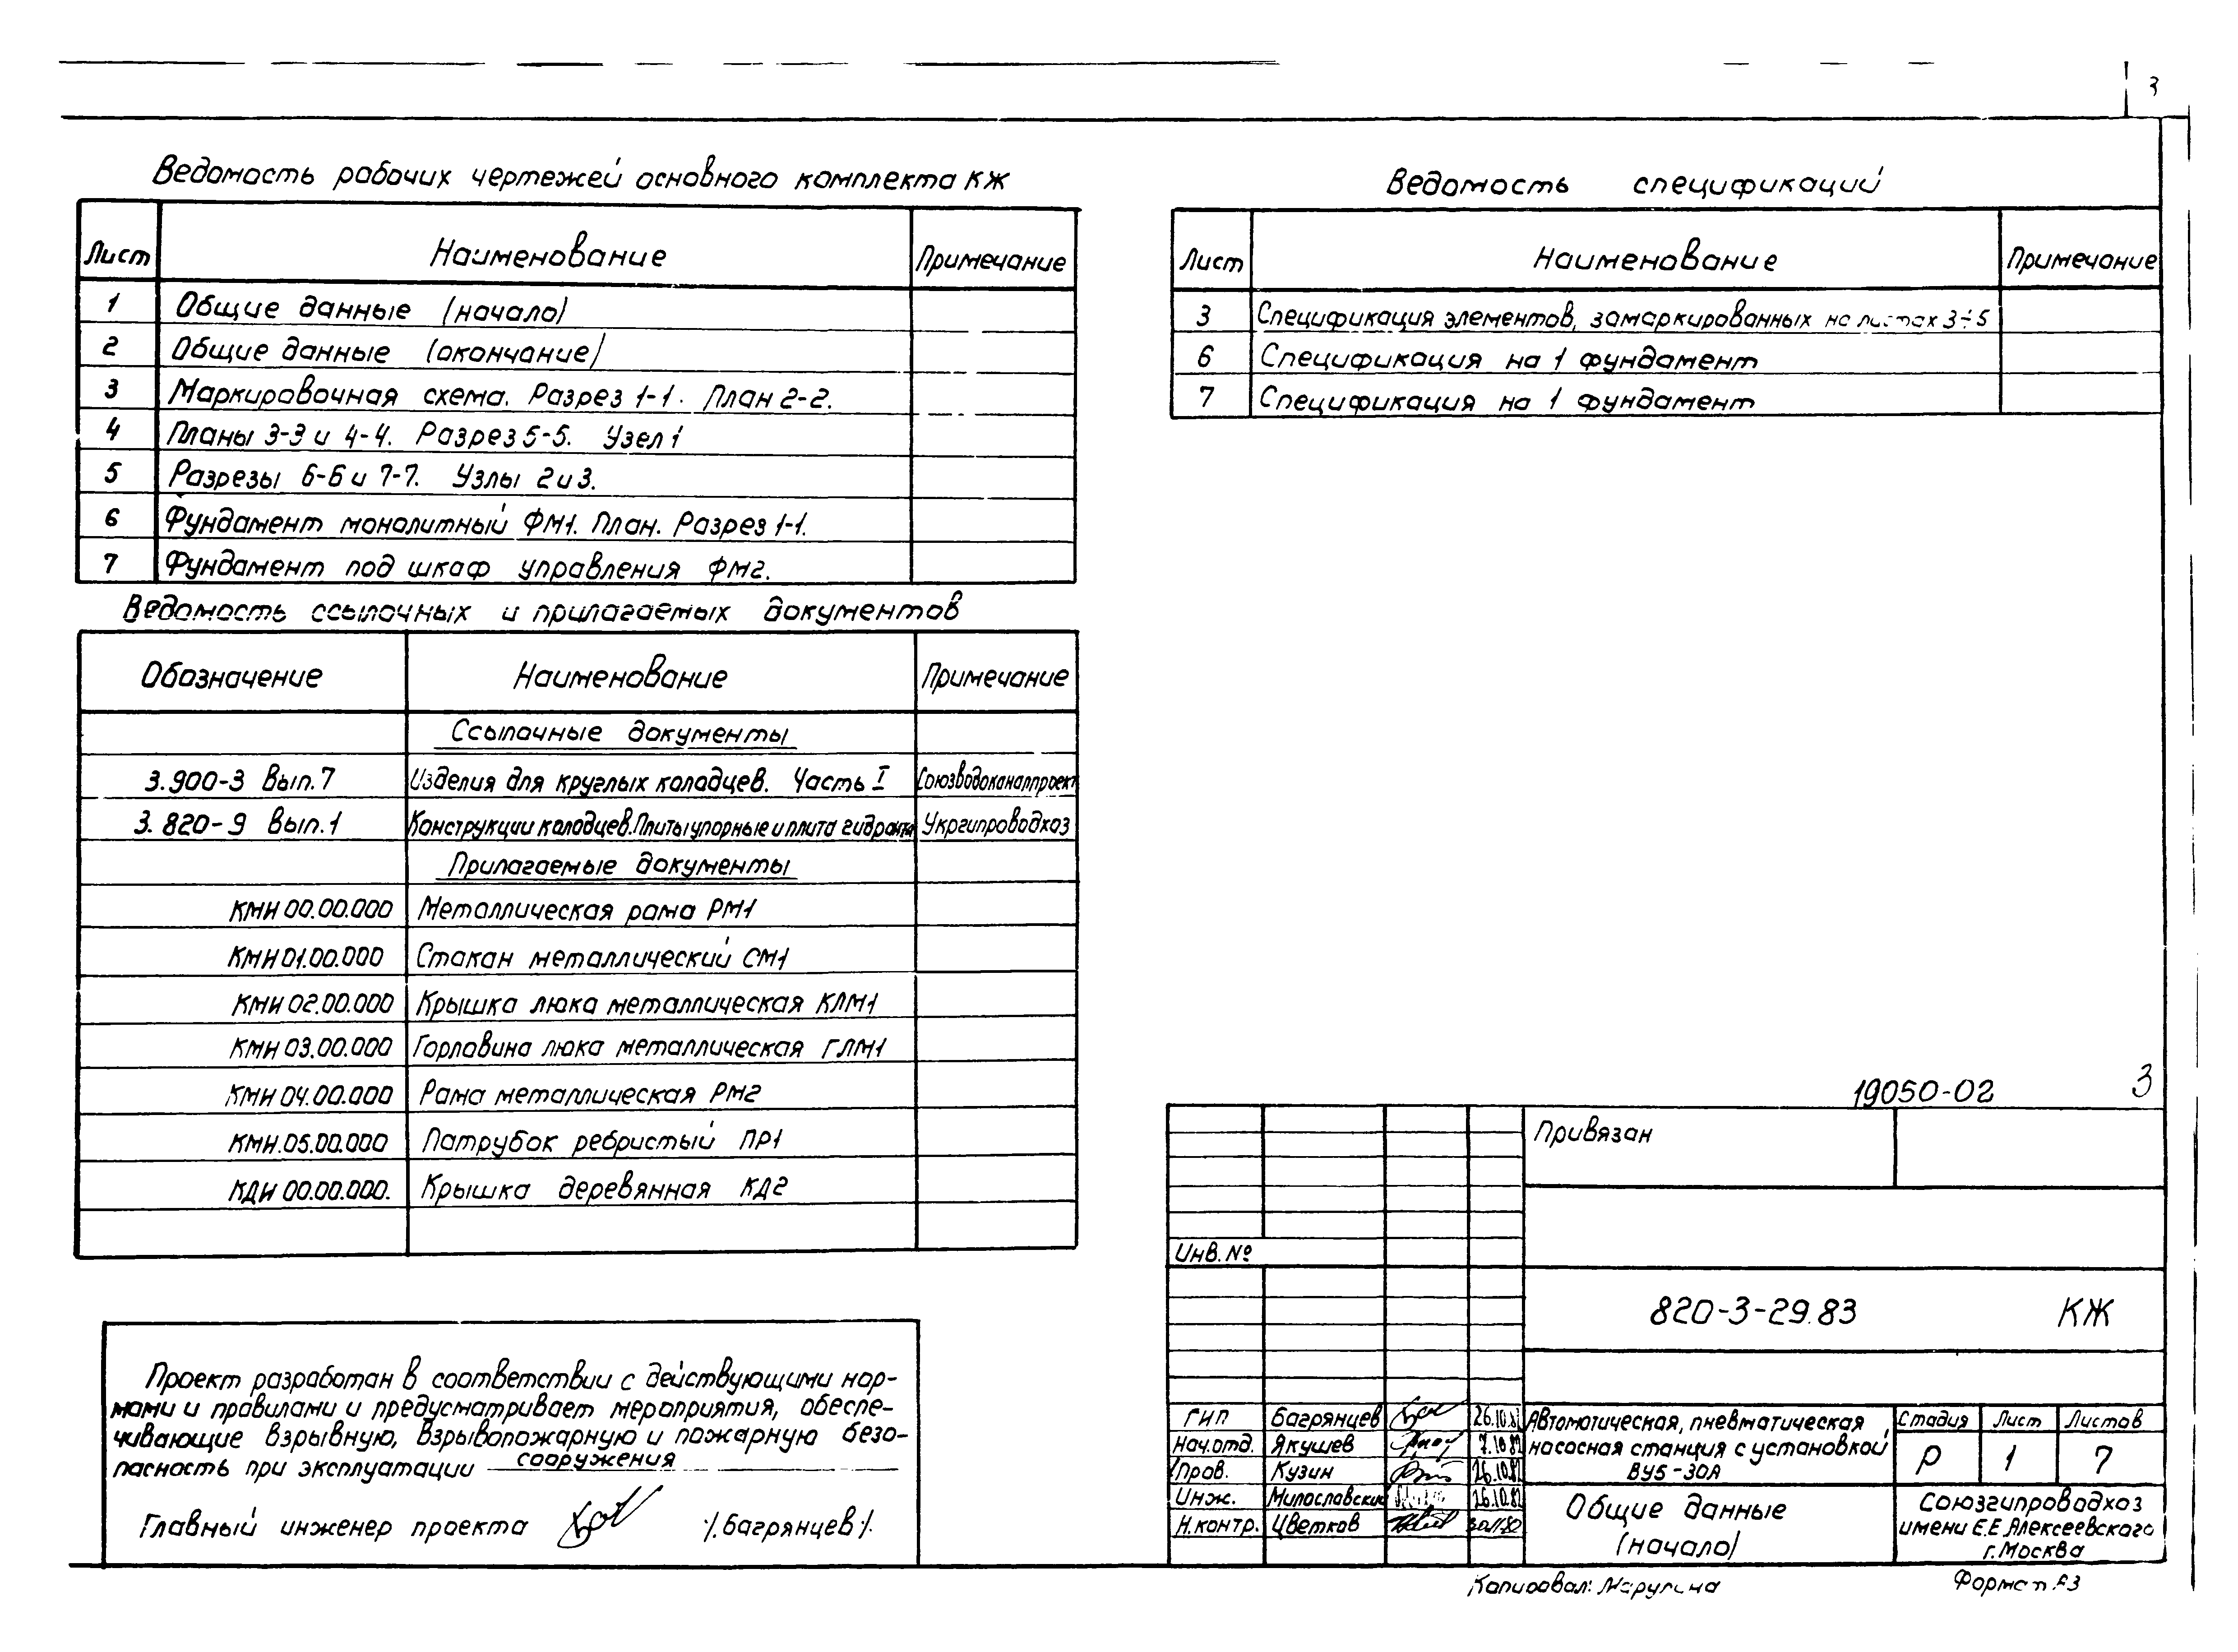 3
Ведомость рабочих чертежей основного комплекта КЖ
Лист Наименование Примечание
1 Общие данные (начало)
2 Общие данные (окончание)
3 Маркировочная схема. Разрез 1-1. План 2-2.
4 Планы 3-3 и 4-4. Разрез 5-5. Узел 1
5 Разрезы 6-6 и 7-7. Узлы 2 и 3.
6 Фундамент монолитный ФМ1. План. Разрез 1-1.
7 Фундамент под шкаф управления ФМ2.
Ведомость ссылочных и прилагаемых документов
Обозначение Наименование Примечание
Ссылочные документы
3.900-3 Вып.7 Изделия для круглых колодцев. Часть I Союзводоканалпроект
3.820-9 Вып.1 Конструкции колодцев. Плиты упорные и плита гидранта Укргипроводхоз
Прилагаемые документы
КМИ 00.00.000 Металлическая рама РМ1
КМИ 01.00.000 Стакан металлический СМ1
КМИ 02.00.000 Крышка люка металлическая КЛМ1
КМИ 03.00.000 Горловина люка металлическая ГЛМ1
КМИ 04.00.000 Рама металлическая РМ2
КМИ.05.00.000 Патрубок ребристый ПР1
КДИ 00.00.000. Крышка деревянная КД2
Проект разработан в соответствии с действующими нор-
мами и правилами и предусматривает мероприятия, обеспе-
чивающие взрывную, взрывопожарную и пожарную безо-
пасность при эксплуатации сооружения
Главный инженер проекта /.Багрянцев/.
Ведомость спецификаций
Лист Наименование Примечание
3 Спецификация элементов, замаркированных на листах 3÷5
6 Спецификация на 1 фундамент
7 Спецификация на 1 фундамент
19050-02 3
Привязан
Инв. №
820-3-29.83 КЖ
ГИП Багрянцев 26.10.82
Нач.отд. Якушев 7.10.82
Пров. Кузин 26.10.82
Инж. Милославский 26.10.82
Н.контр. Цветков
Автоматическая, пневматическая
насосная станция с установкой
ВУ5-30А
Стадия Лист Листов
Р 1 7
Общие данные
(начало)
Союзгипроводхоз
имени Е.Е.Алексеевского
г.Москва
Копировал: Марулина
Формат А3